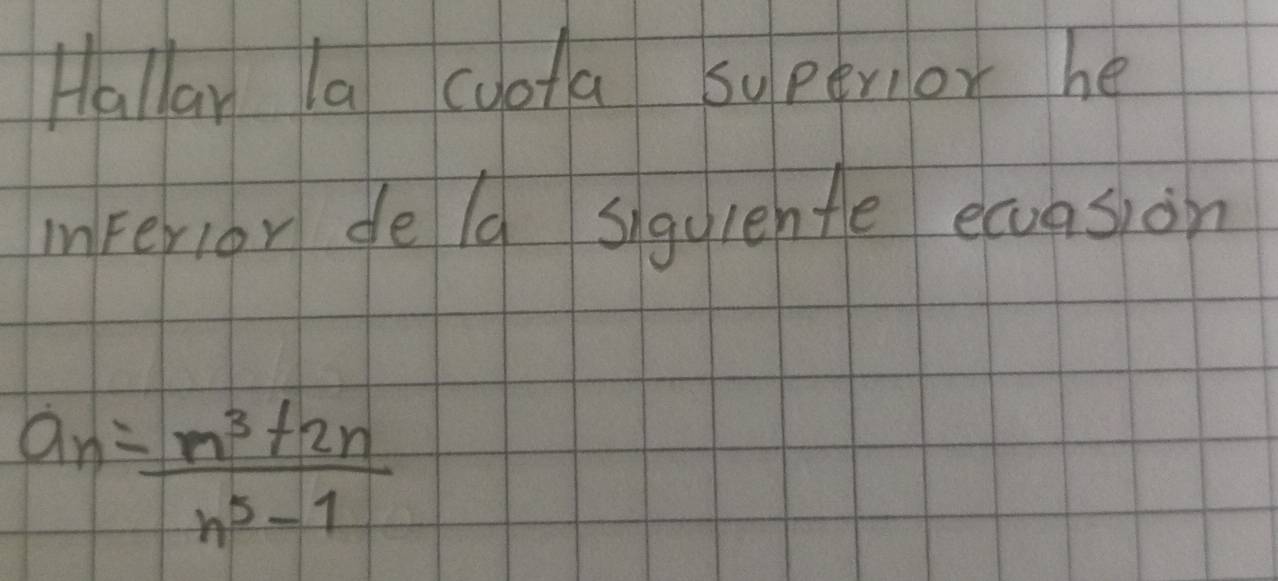 Hallar la cuota superior he
inferior de la siguiente ecuasión
an = m³ + 2n
n⁵ - 1